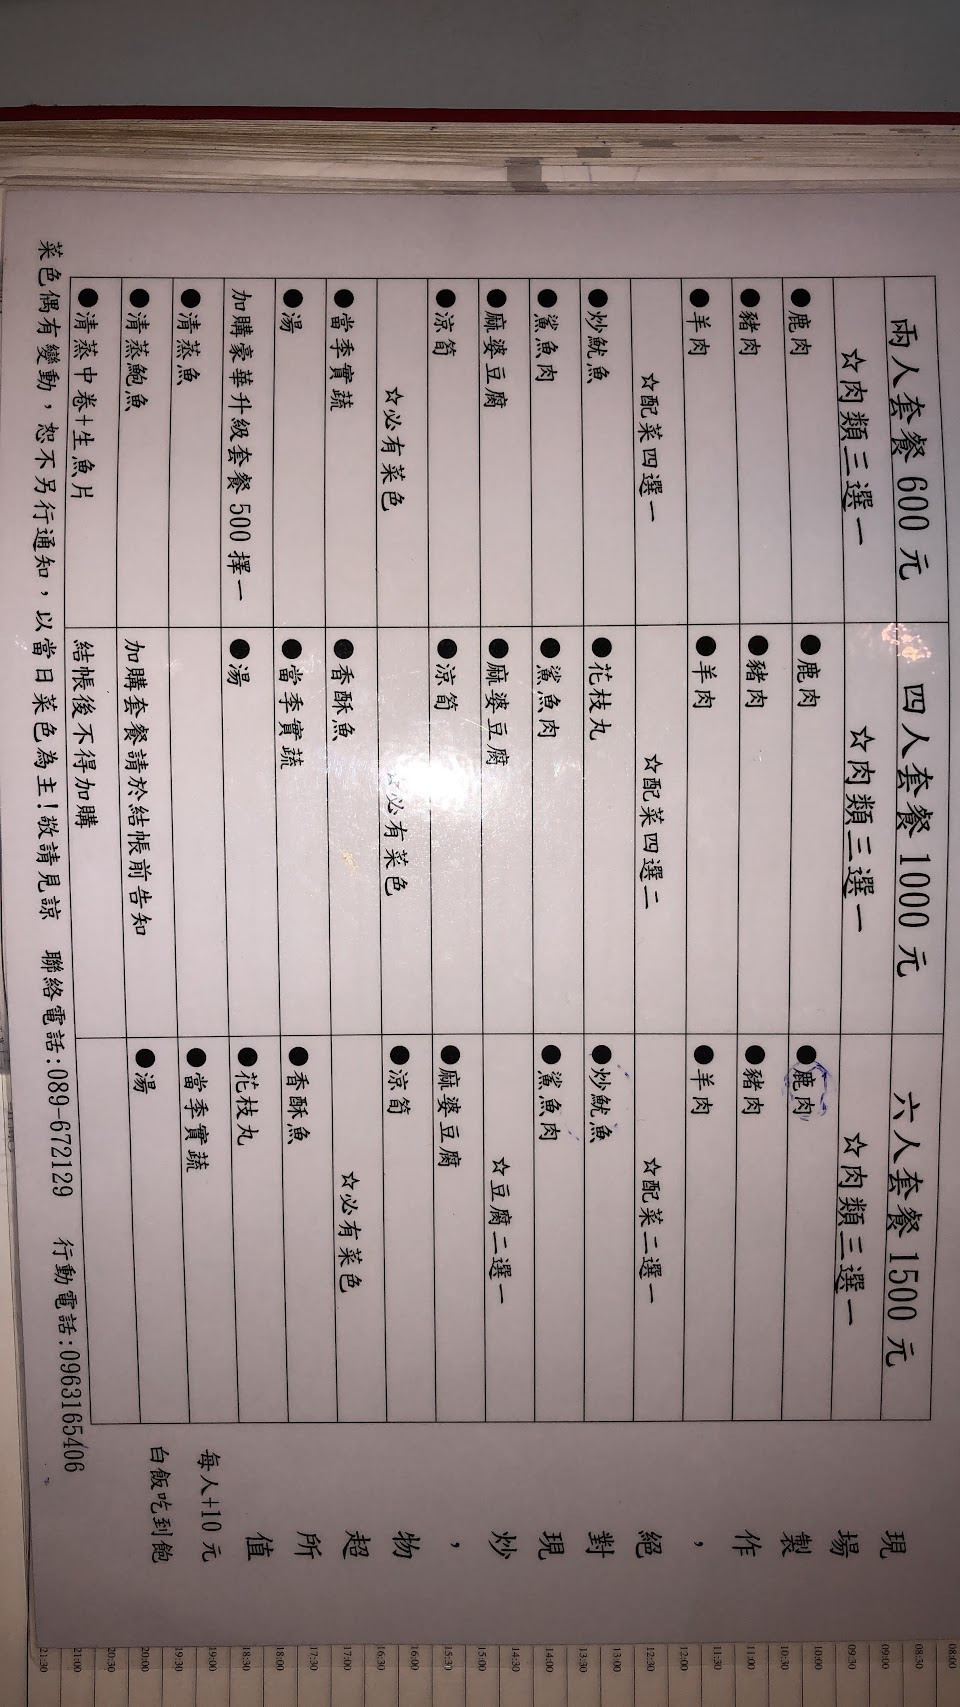 兩人套餐 600 元
☆肉類三選一
●鹿肉
●豬肉
●羊肉
☆配菜四選一
●炒魷魚
●鯊魚肉
●麻婆豆腐
●涼筍
☆必有菜色
●當季實蔬
●湯
加購豪華升級套餐 500 擇一
●清蒸魚
●清蒸鮑魚
●清蒸中卷+生魚片
四人套餐 1000 元
☆肉類三選一
●鹿肉
●豬肉
●羊肉
☆配菜四選二
●花枝丸
●鯊魚肉
●麻婆豆腐
●涼筍
☆必有菜色
●香酥魚
●當季實蔬
●湯
加購套餐請於結帳前告知
結帳後不得加購
六人套餐 1500 元
☆肉類三選一
●鹿肉
●豬肉
●羊肉
☆配菜二選一
●炒魷魚
●鯊魚肉
☆豆腐二選一
●麻婆豆腐
●涼筍
☆必有菜色
●香酥魚
●花枝丸
●當季實蔬
●湯
現場製作，絕對現炒，物超所值
每人+10 元
白飯吃到飽
菜色偶有變動，恕不另行通知，以當日菜色為主!敬請見諒 聯絡電話:089-672129 行動電話:0963165406
08:00
08:30
09:00
09:30
10:00
10:30
11:00
11:30
12:00
12:30
13:00
13:30
14:00
14:30
15:00
15:30
16:00
16:30
17:00
17:30
18:00
18:30
19:00
19:30
20:00
20:30
21:00
21:30